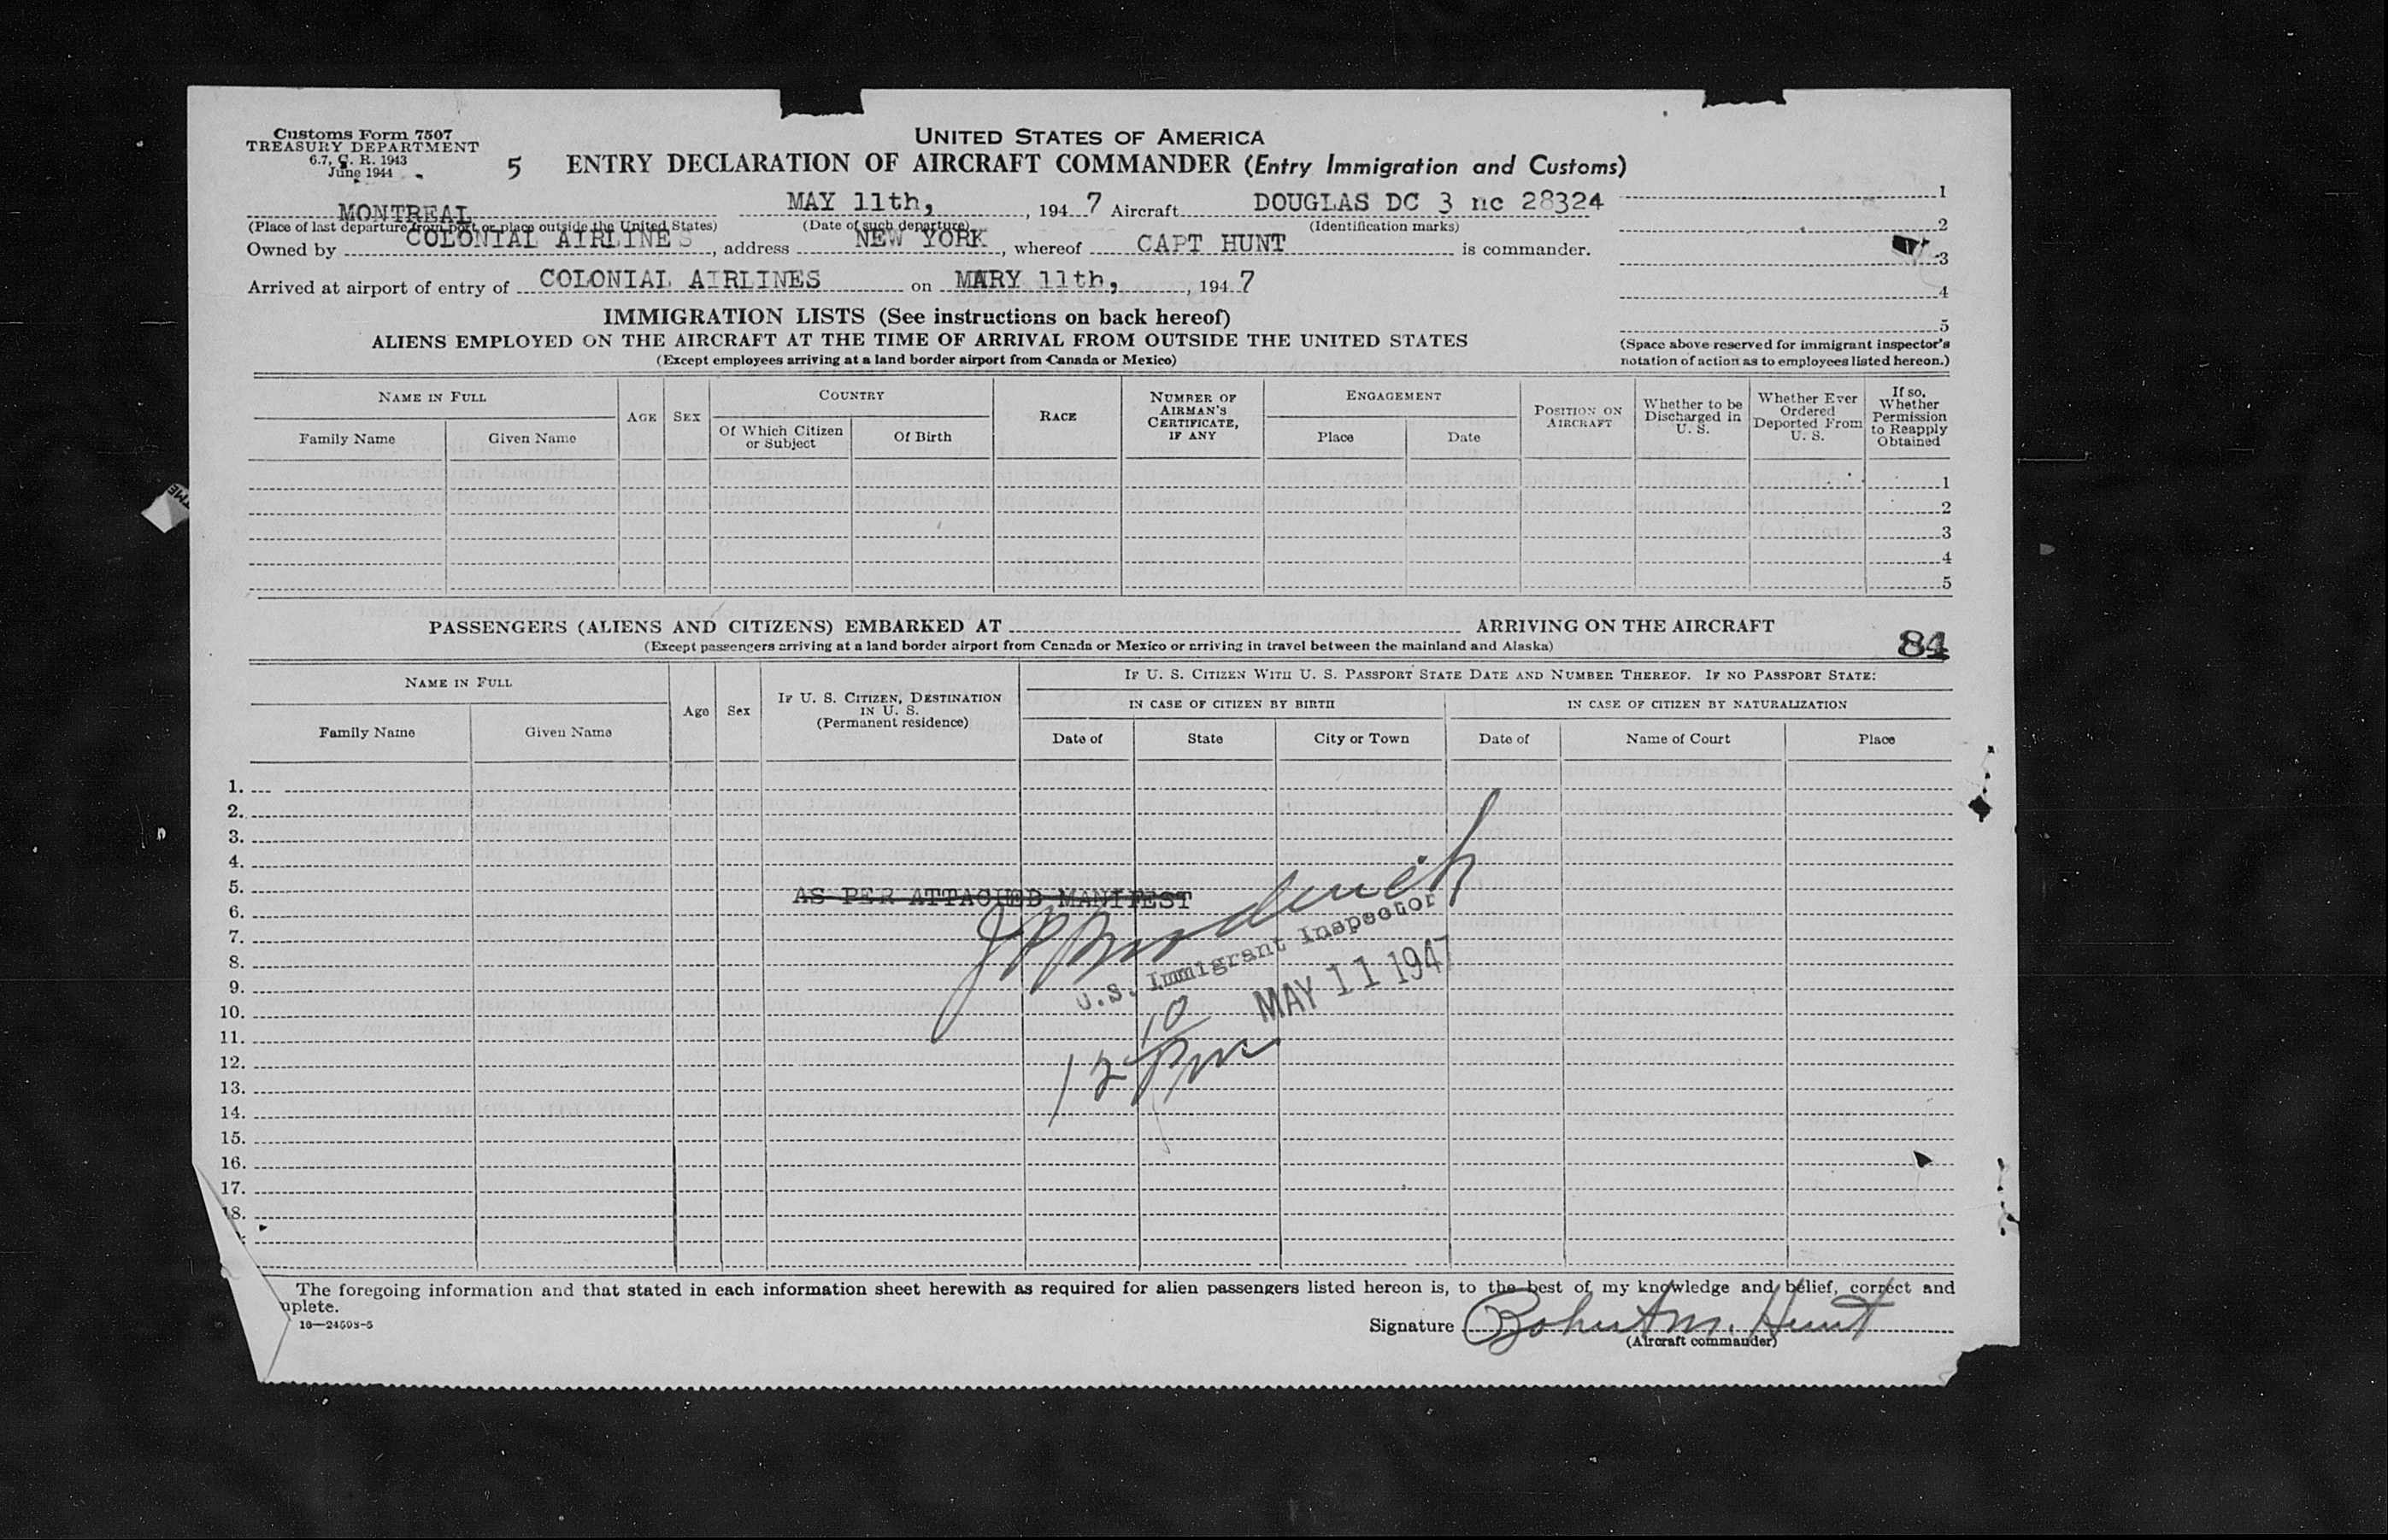 Customs Form 7507
TREASURY DEPARTMENT
6.7, C. R. 1943
June 1944
5
UNITED STATES OF AMERICA
ENTRY DECLARATION OF AIRCRAFT COMMANDER (Entry Immigration and Customs)
MONTREAL MAY 11th, , 194 7 Aircraft DOUGLAS DC 3 nc 28324
(Place of last departure from port or place outside the United States) (Date of such departure) (Identification marks)
Owned by COLONIAL AIRLINES , address NEW YORK , whereof CAPT HUNT is commander.
Arrived at airport of entry of COLONIAL AIRLINES on MARY 11th, , 194 7
1
2
3
4
5
(Space above reserved for immigrant inspector's
notation of action as to employees listed hereon.)
IMMIGRATION LISTS (See instructions on back hereof)
ALIENS EMPLOYED ON THE AIRCRAFT AT THE TIME OF ARRIVAL FROM OUTSIDE THE UNITED STATES
(Except employees arriving at a land border airport from Canada or Mexico)
NAME IN FULL
Family Name Given Name
AGE
SEX
COUNTRY
Of Which Citizen or Subject
Of Birth
RACE
NUMBER OF AIRMAN'S CERTIFICATE, IF ANY
ENGAGEMENT
Place Date
POSITION ON AIRCRAFT
Whether to be Discharged in U. S.
Whether Ever Ordered Deported From U. S.
If so, Whether Permission to Reapply Obtained
1
2
3
4
5
PASSENGERS (ALIENS AND CITIZENS) EMBARKED AT ARRIVING ON THE AIRCRAFT
(Except passengers arriving at a land border airport from Canada or Mexico or arriving in travel between the mainland and Alaska)
84
NAME IN FULL
Family Name Given Name
Age
Sex
IF U. S. CITIZEN, DESTINATION IN U. S.
(Permanent residence)
IF U. S. CITIZEN WITH U. S. PASSPORT STATE DATE AND NUMBER THEREOF. IF NO PASSPORT STATE:
IN CASE OF CITIZEN BY BIRTH
IN CASE OF CITIZEN BY NATURALIZATION
Date of State City or Town Date of Name of Court Place
1.
2.
3.
4.
5.
AS PER ATTACHED MANIFEST
6.
7.
8.
9.
10.
11.
12.
13.
14.
15.
16.
17.
18.
U.S. Immigrant Inspector
MAY 11 1947
12 10 pm
The foregoing information and that stated in each information sheet herewith as required for alien passengers listed hereon is, to the best of my knowledge and belief, correct and
mplete.
16—24598-5
Signature Robert M. Hunt
(Aircraft commander)